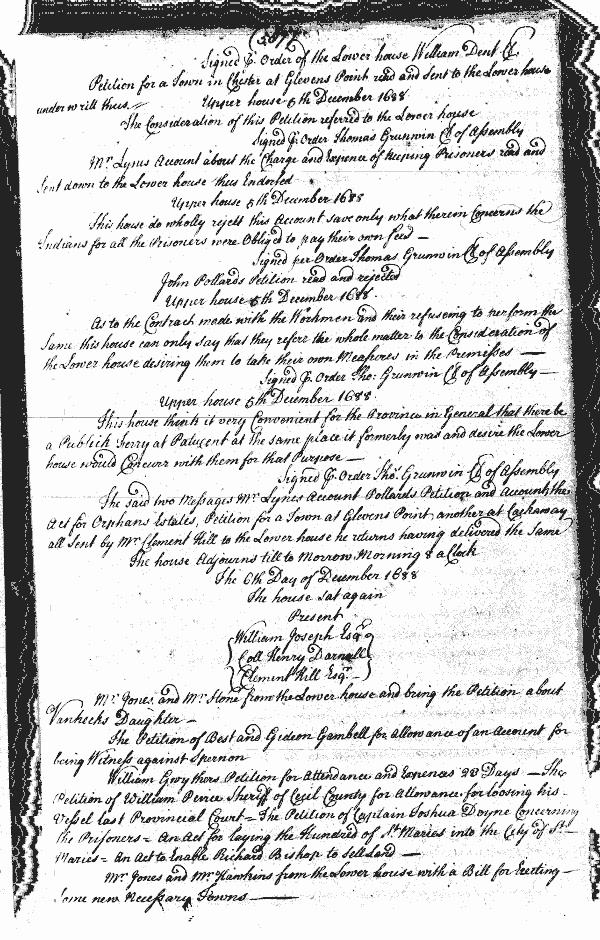 Signed p. Order of the Lower house William Dent Cl
Petition for a Town in Chester at Glevens Point read and sent to the Lower house
underwritt thus.
Upper house 5th December 1688
The Consideration of this Petition referred to the Lower house
Signed p. Order Thomas Grunwin Cl of Assembly
Mr. Lynes Account about the Charge and Expence of keeping Prisoners read and
sent down to the Lower house thus Endorsed
Upper house 5th December 1688
This house do wholly reject this Account save only what therein Concerns the
Indians for all the Prisoners were Obliged to pay their own fees —
Signed per Order Thomas Grunwin Cl of Assembly
John Pollards Petition read and rejected
Upper house 5th December 1688
As to the Contract made with the Workmen and their refuseing to perform the
same this house can only say that they referr the whole matter to the Consideration of
the Lower house desiring them to take their own Measures in the Premisses —
Signed p. Order Tho: Grunwin Cl of Assembly —
Upper house 5th December 1688
This house think it very Convenient for the Province in General that there be
a Publick Ferry at Patuxent at the same place it formerly was and desire the Lower
house would Concurr with them for that Purpose —
Signed p. Order Tho. Grunwin Cl of Assembly
The said two Messages Mr. Lynes Account Pollards Petition and Account, the
Act for Orphans Estates, Petition for a Town at Glevens Point another at
all Sent by Mr. Clement Hill to the Lower house he returns having delivered the Same
The house Adjourns till to Morrow Morning 8 a Clock
The 6th Day of December 1688
The house Sat again
Present
William Joseph Esqr.
Coll Henry Darnall
Clement Hill Esqr.
Mr. Jones and Mr. Stone from the Lower house and bring the Petition about
Vanhecks Daughter —
The Petition of Best and Gideon Gambell for Allowance of an Account for
being Witness against Spernon
William Gwythers Petition for Attendance and Expences 23 Days — The
Petition of William Peirce Sheriff of Cecil County for Allowance for loosing his
Vessel last Provincial Court = The Petition of Captain Joshua Doyne Concerning
the Prisoners = An Act for laying the Hundred of St. Maries into the City of St.
Maries = An Act to Enable Richard Bishop to sell Land —
Mr. Jones and Mr. Hawkins from the Lower house with a Bill for Erecting
Some new Necessary Towns —